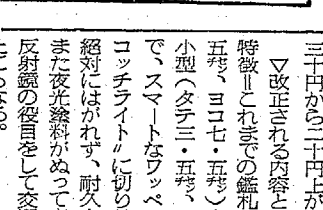 三十円から二十円上が
▽改正される内容と
特徴＝これまでの鑑札
五㌢、ヨコ七・五㌢）
小型（タテ三・五㌢、
で、スマートなワッペ
コッチライト〃に切り
絶対にはがれず、耐久
また夜光塗料がぬって
反射鏡の役目をして交